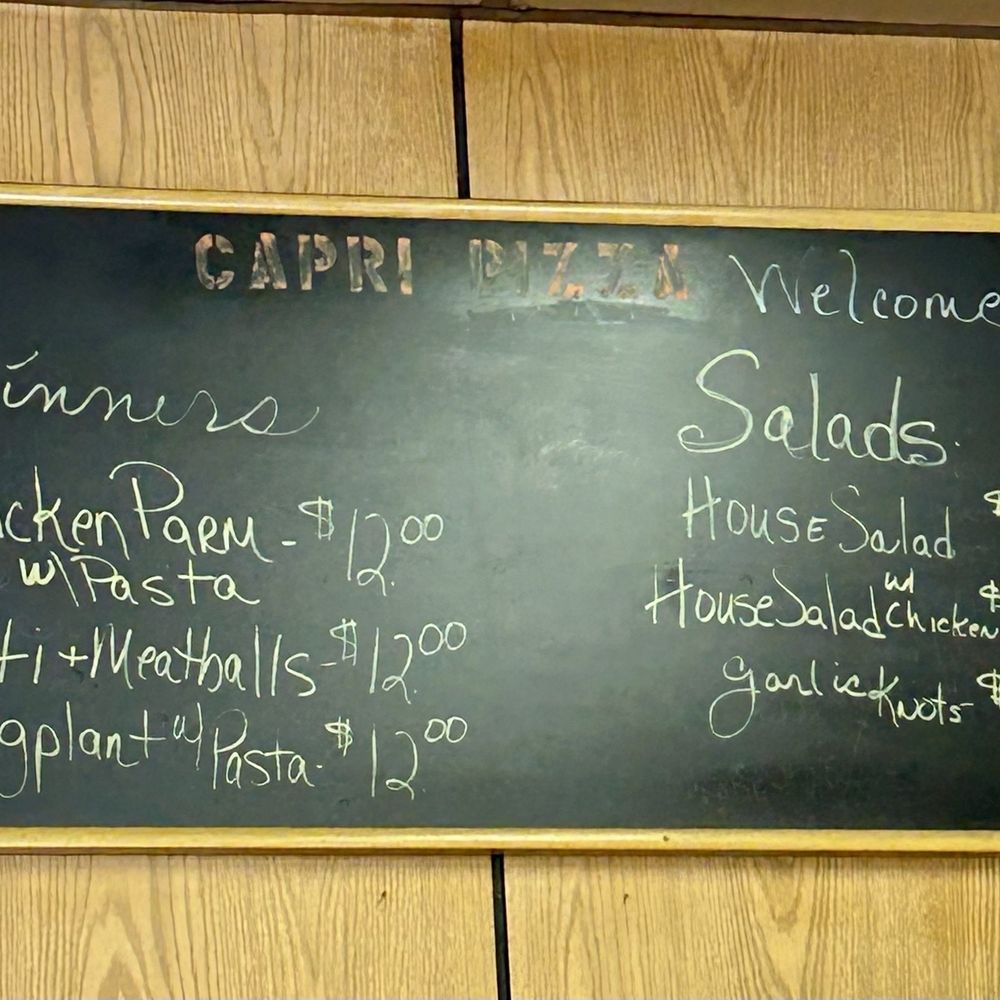 CAPRI PIZZA
Welcome
inners
icken Parm - $12.00
w\ Pasta
ti + Meatballs - $12.00
ggplant w/ Pasta - $12.00
Salads
House Salad $
House Salad w/ Chicken $
Garlic Knots $